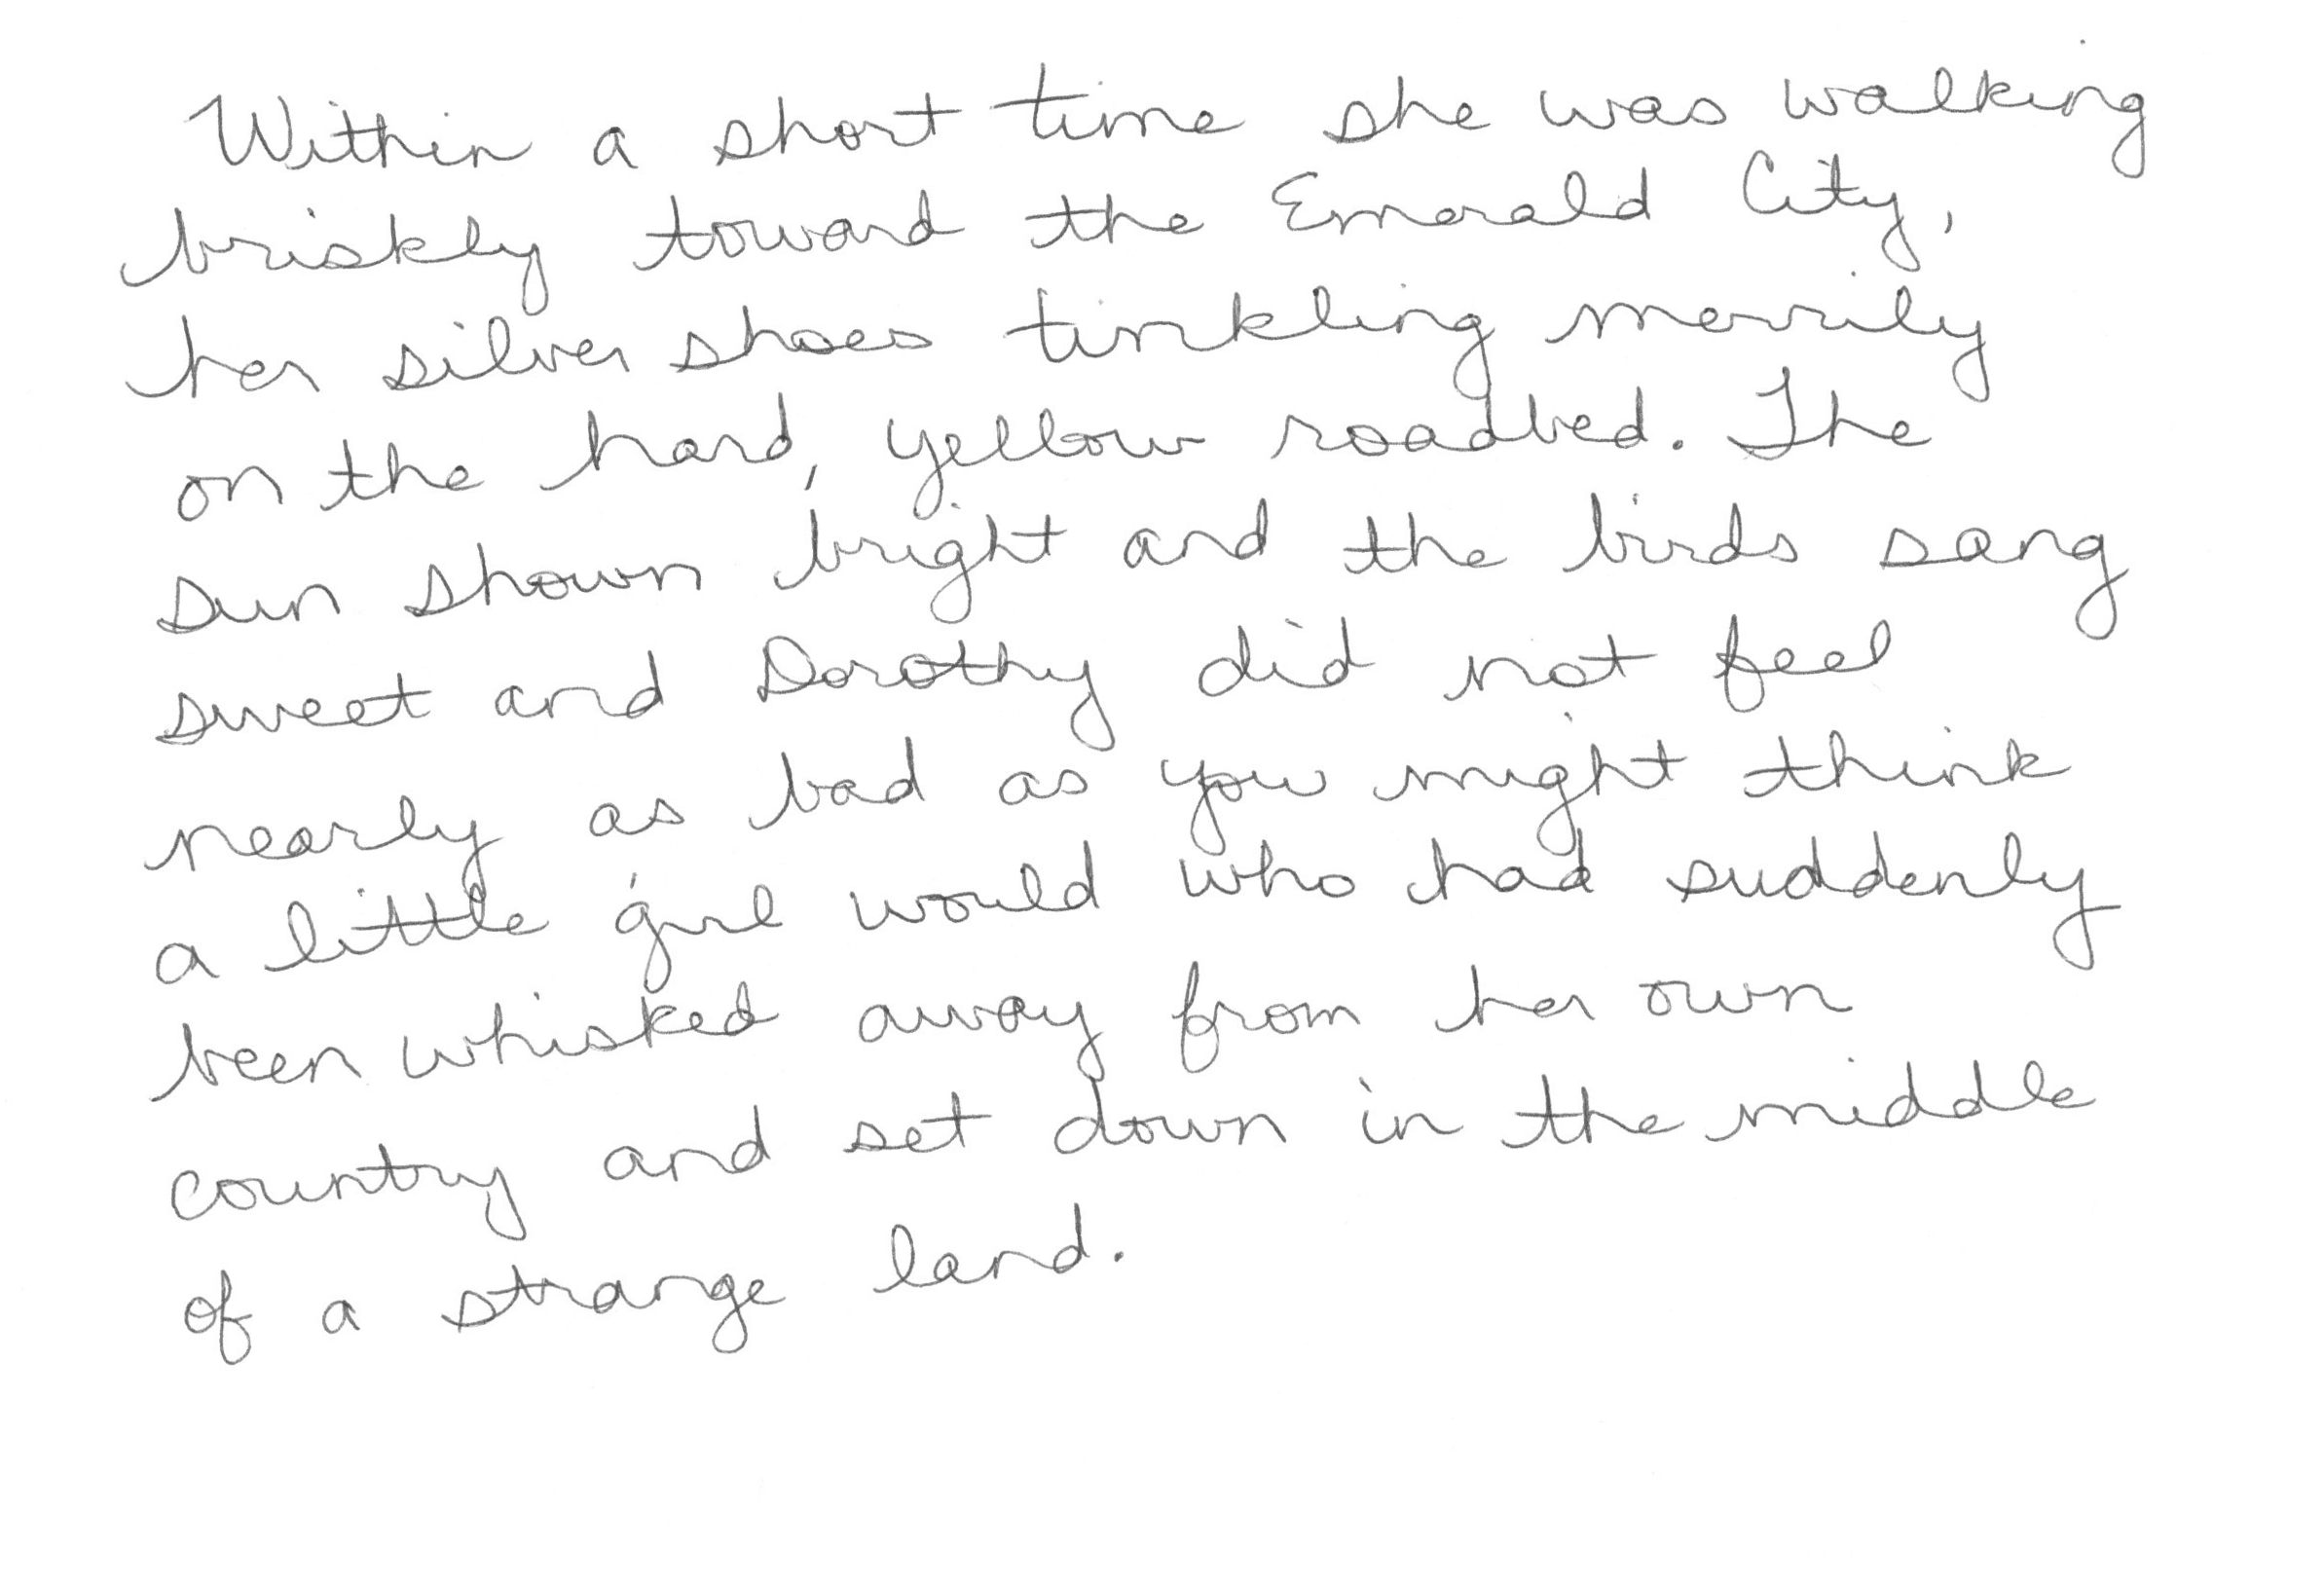 Within a short time she was walking
briskly toward the Emerald City,
her silver shoes tinkling merrily
on the hard, yellow roadbed. The
sun shown bright and the birds sang
sweet and Dorothy did not feel
nearly as bad as you might think
a little girl would who had suddenly
been whisked away from her own
country and set down in the middle
of a strange land.